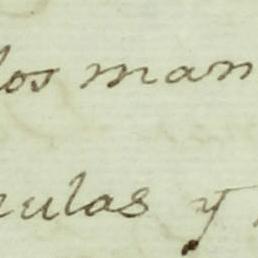 los man
culas y